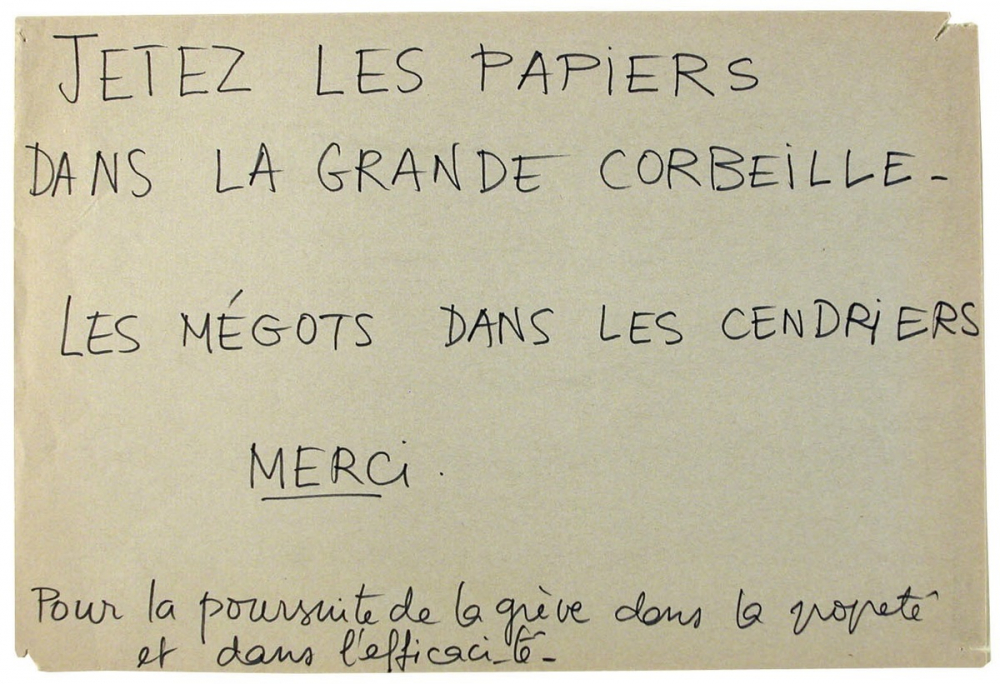 JETEZ LES PAPiERS
DANS LA GRANDE CORBEiLLE-
LES MÉGOTS DANS LES CENDRiERS
MERCi.
Pour la poursuite de la grève dans la propreté
et dans l'efficacité-